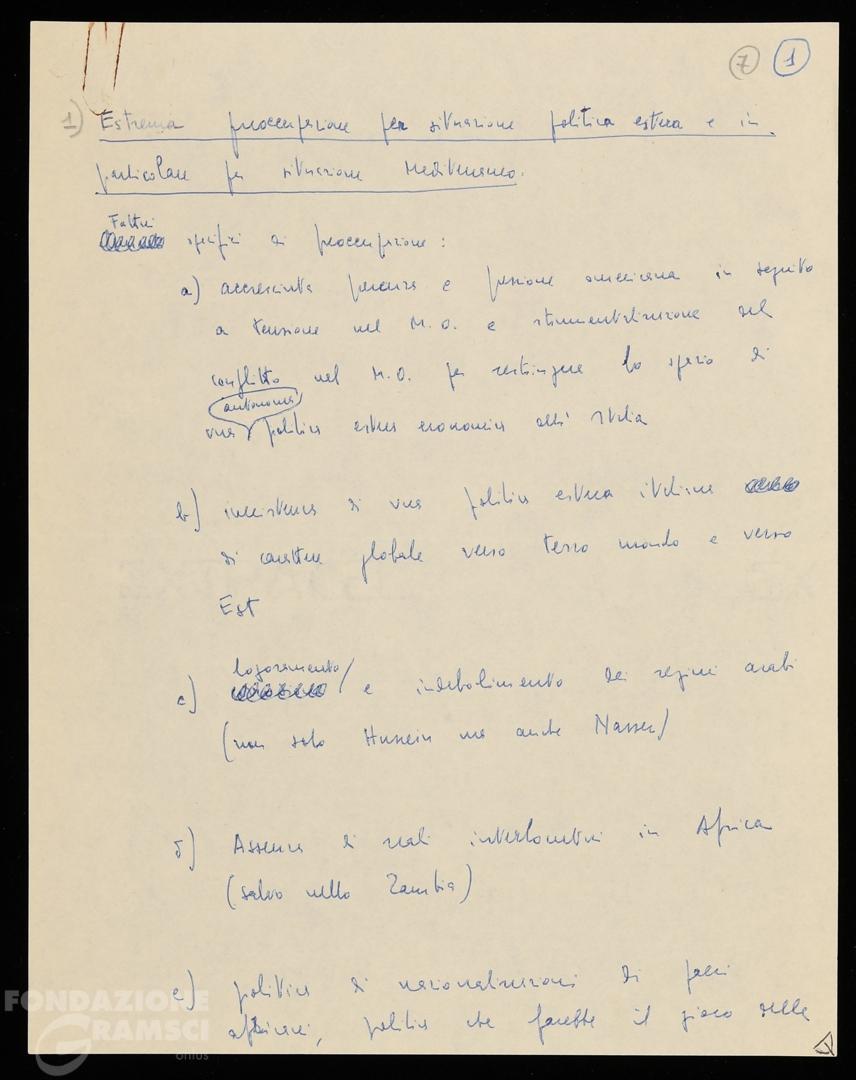 7 1
1) Estrema preoccupazione per situazione politica estera e in
particolare per situazione Mediterraneo.
Fattori
specifici di preoccupazione:
a) accresciuta presenza e pressione americana in seguito
a tensione nel M.O. e strumentalizzazione del
conflitto nel M.O. per restringere lo spazio di
autonoma
una politica estera economica all'Italia
b) inesistenza di una politica estera italiana
di carattere globale verso terzo mondo e verso
Est
logoramento
c) e indebolimento dei regimi arabi
(non solo Hussein ma anche Nasser)
d) Assenza di reali interlocutori in Africa
(salvo nello Zambia)
e) politica di nazionalizzazioni di paesi
africani, politica che farebbe il gioco delle
FONDAZIONE
GRAMSCI
onlus